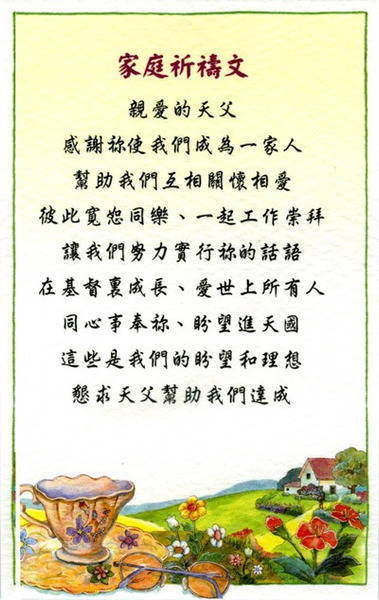 家庭祈禱文
親愛的天父
感謝祢使我們成為一家人
幫助我們互相關懷相愛
彼此寬恕同樂、一起工作崇拜
讓我們努力實行祢的話語
在基督裏成長、愛世上所有人
同心事奉祢、盼望進天國
這些是我們的盼望和理想
懇求天父幫助我們達成